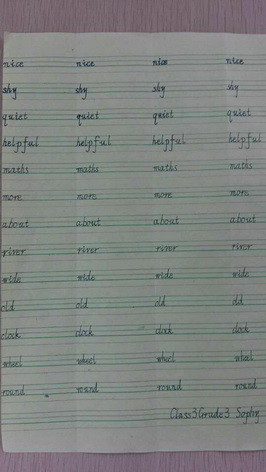 nice nice nice nice
shy shy shy shy
quiet quiet quiet quiet
helpful helpful helpful helpful
maths maths maths maths
more more more more
about about about about
river river river river
wide wide wide wide
old old old old
clock clock clock clock
wheel wheel wheel wheel
round round round round
Class3Grade3 Sophy